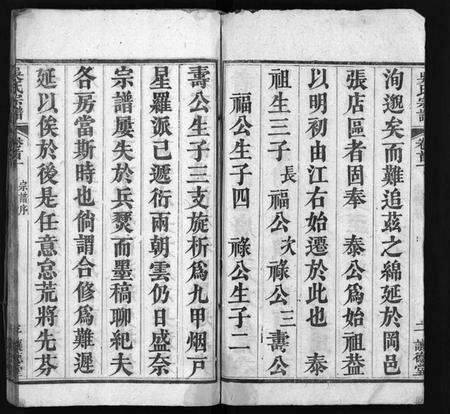 吳氏宗譜
卷首一
洵邈矣而難追茲之綿延於岡邑
張店區者固奉　泰公為始祖葢
以明初由江右始遷於此也　泰
祖生三子長　福公次　祿公三　壽公
福公生子四　祿公生子二
二　讓德堂
壽公生子三支旋析為九甲烟戸
星羅派已遞衍兩朝雲仍日盛奈
宗譜屢失於兵燹而墨稿聊紀夫
各房當斯時也倘謂合修為難遲
延以俟於後是任意怠荒將先芬
吳氏宗譜
卷首一
宗譜序
讓德堂